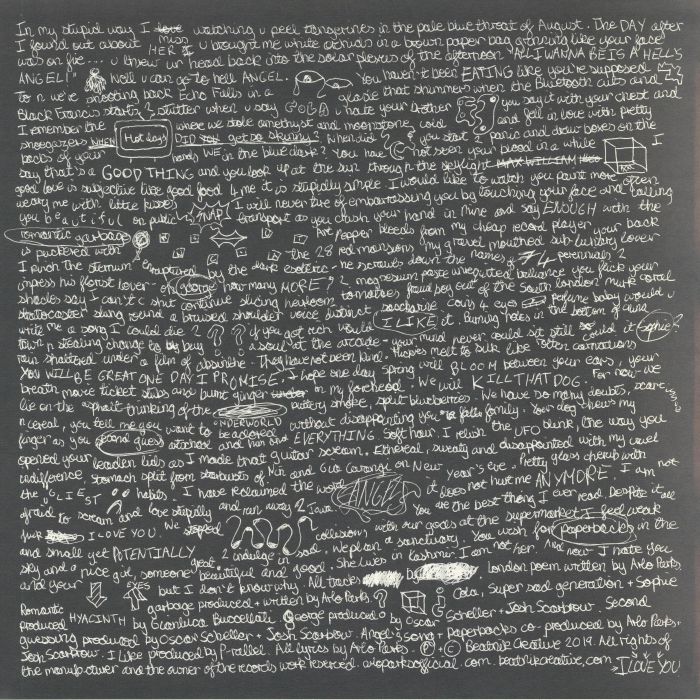 In my stupid way I watching u peel tangerines in the pale blue throat of August. The DAY after
I found out about HER I miss u brought me white orchids in a brown paper bag grinning like your face
was on fire... u threw ur head back into the solar plexus of the afternoon "ALL I WANNA BE IS A HELL'S
ANGEL!" Well u can go to hell ANGEL. You haven't been EATING like you're supposed
To n we're shooting back Echo Falls in a glade that shimmers when the Bluetooth cuts and
Black Francis starts 2 stutter when u say GOLD u hate your brother you say it with your chest and
I remember the where we stole amethyst and moonstone cold and fell in love with petty
shoegazers WHEN Hot days DID YOU get so skinny? When did you start 2 panic and draw boxes on the
backs of your hands WE in the blue dark? You have not seen your blood in a while I
say that's a GOOD THING and you look up at the sun through the skylight
good love is subjective like good food 4 me it is stupidly simple I would like to watch you paint more often
weary me with little fusses I will never tire of embarrassing you by touching your face and calling
you beautiful on public SNAP transport as you crush your hand in mine and say ENOUGH with the
romantic garbage hot pepper bleeds from my cheap record player your back
is puckered with the 28 red mansions my gravel mouthed sub-luxury lover
I punch the sternum enraptured by the dark esoteric - he scrawls down the names of 74 perennials 2
impess his florist lover - of george how many MORE? 2 magnesium paste unrequited balance you flick your
shades say I can't sh*t continue slicing heirloom tomatoes fraud boy out of the South london murk coral
stratocaster slung round a bruised shoulder voice distinct saccharine cows 4 eyes perfume baby would u
write me a song I could die 2 ? ? if you got rich would I LIKE it. Bunny holes in the bottom of
town n stealing change to buy a soul at the arcade - your mind never could sit still could it sophie?
rain shattered under a film of absinthe. They have not been kind. Thickets melt to silk like rotten carnations
YOU WILL BE GREAT ONE DAY I PROMISE. I hope one day spring will BLOOM between your ears, your
breath movie ticket stubs and burnt ginger on my forehead. We will KILL THAT DOG. For now we
lie on the asphalt thinking of the puttery smoke, split blueberries. We have so many doubts, scarce
n cereal you tell me you want to be adored UNDERWORLD without disappointing your family. Your dog chews my
finger as you second guess attached and run and EVERYTHING Soft hour. I relish the UFO blink, the way you
opened your leaden lids as I made that guitar scream. Ethereal, sweaty and disappointed with my usual
indifference, stomach split from starbursts of Mr and Gia Carangi on New year's eve. Pretty glass cherub with
the "CLIEST" habits. I have reclaimed the word ANGEL it does not hurt me ANYMORE. I am not
afraid to scream and love stupidly and run away 2 Java. You are the best thing I ever read. Despite it all
I LOVE YOU. We stopped collisions with our goals at the supermarket I feel weak
and small yet POTENTIALLY great 2 indulge in sad. We plan a sanctuary. You wish for paperbacks in the
sky and a nice girl, someone beautiful and good. She lives in Kashmir. I am not her. And now I hate you
and your yes but I don't know why. All tracks by London poem written by Arlo Parks.
Romantic garbage produced + written by Arlo Parks. Cola, Super sad generation + Sophie
produced HYACINTH by Gianluca Buccellati. George produced by Oscar Scheller + Josh Scarbrow. Second
guessing produced by Oscar Scheller + Josh Scarbrow. Angel's song + paperbacks co-produced by Arlo Parks +
Josh Scarbrow. I like produced by P-rallel. All lyrics by Arlo Parks. Ⓟ + © Beatnik Creative 2019. All rights of
the manufacturer and the owner of the records work reserved. arloparksofficial.com. beatnikcreative.com → I LOVE YOU